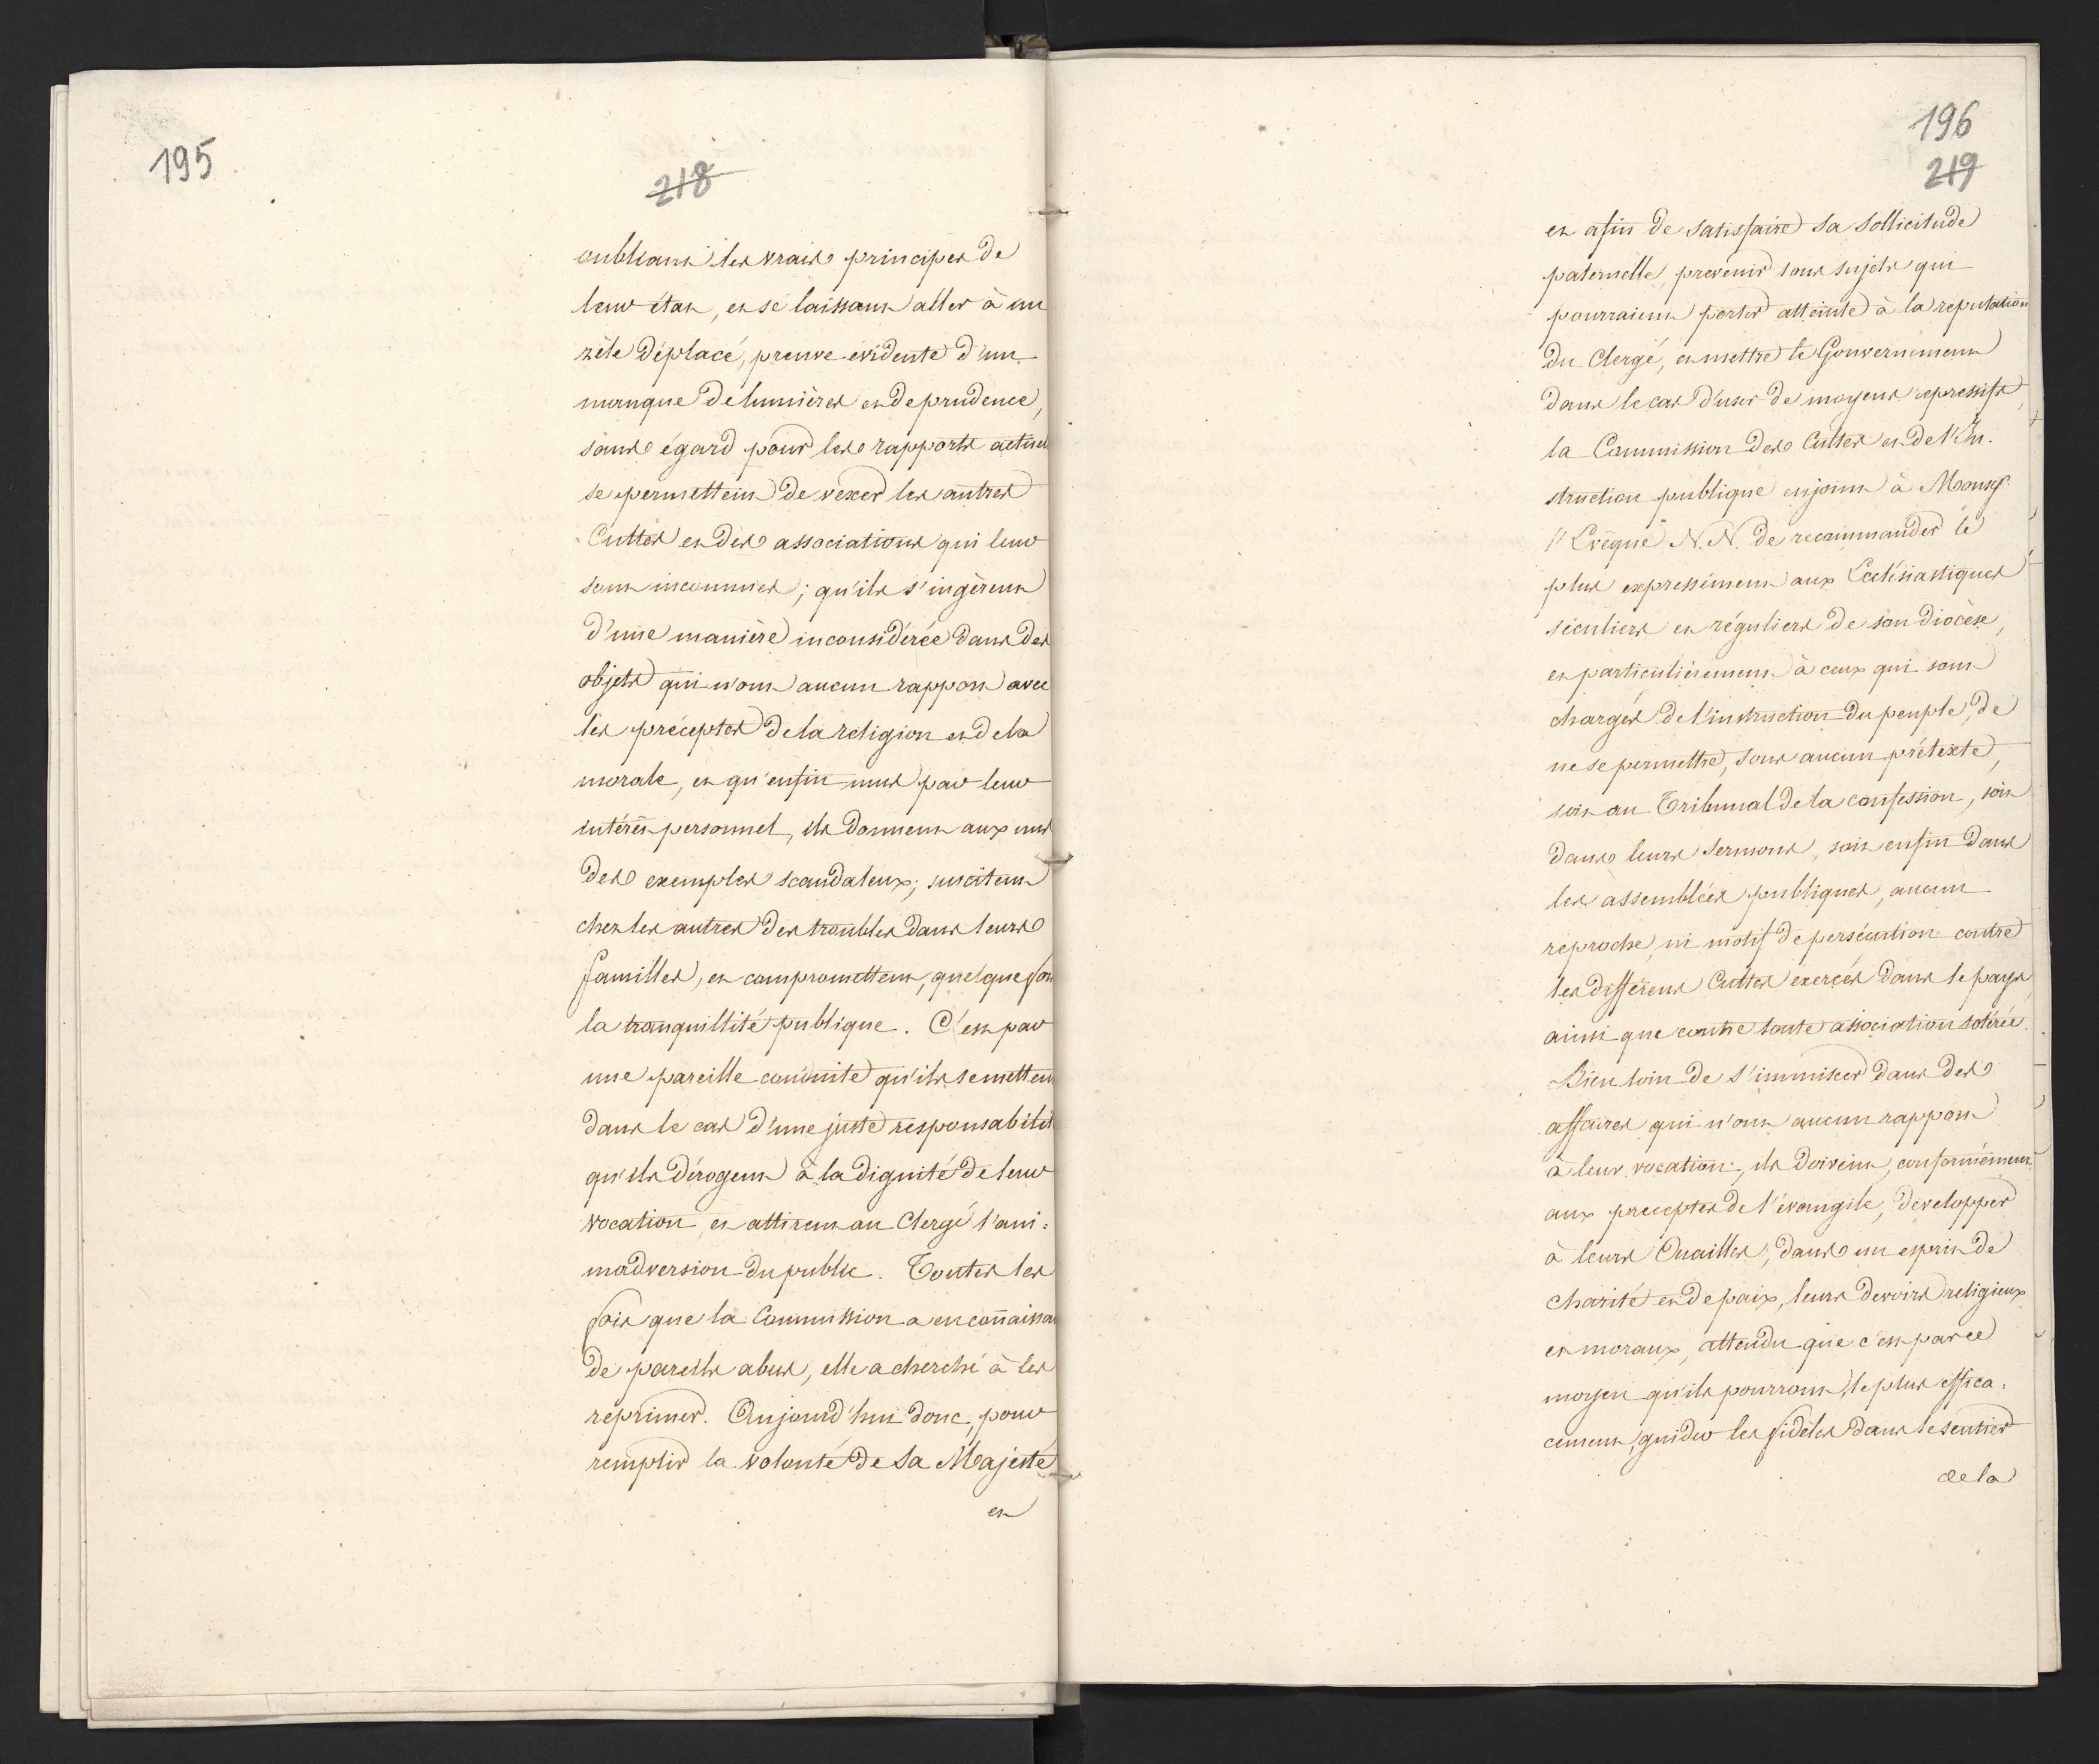 195
218
oubliant les vrais principes de
leur état, et se laissant aller à un
zèle déplacé, preuve evidente d'un
manque de lumières et de prudence,
sans égard pour les rapports actuel
se permettent de vexer les autres
Cultes et des associations qui leur
sont inconnues; qu'ils s'ingèrent
d'une manière inconsidérée dans des
objets qui n'ont aucun rapport avec
les préceptes de la religion et de la
morale, et qu'enfin mus par leur
intérêt personnel, ils donnent aux uns
des exemples scandaleux; suscitent
chez les autres des troubles dans leurs
familles, et compromettent, quelquefois
la tranquillité publique. C'est par
une pareille conduite qu'ils se mettent
dans le cas d'une juste responsabilité
qu'ils dérogent à la dignité de leur
vocation, et attirent au Clergé l'ani=
madversion du public. Toutes les
fois que la Commission a eu connaissa
de pareils abus, elle a cherché à les
réprimer. Aujourd'hui donc, pour
remplir la volonté de Sa Majesté
et
196
219
et afin de satisfaire sa sollicitude
paternelle, prevenir tous sujets qui
pourraient porter atteinte à la reputation
du Clergé, et mettre le Gouvernement
dans le cas d'user de moyens repressifs,
la Commission des Cultes et de l'In.
struction publique enjoint à Monsg.
l'Evêque N. N. de recommander le
plus expressément aux Ecclésiastiques
séculiers et réguliers de son Diocèse,
et particulièrement à ceux qui sont
chargés de l'instruction du peuple, de
ne se permettre, sous aucun prétexte,
soit au Tribunal de la confession, soit
dans leurs sermons, soit enfin dans
les assemblées publiques, aucun
reproche, ni motif de persécution contre
les différens Cultes exercés dans le pays,
ainsi que contre toute association tolérée.
Bien loin de s'immiscer dans des
affaires qui n'ont aucun rapport
à leur vocation, ils doivent, conformément
aux preceptes de l'évangile, developper
à leurs Ouailles, dans un esprit de
charité et de paix, leurs devoirs religieux
et moraux, attendu que c'est par ce
moyen qu'ils pourront, le plus effica=
cement, guider les fidèles dans le sentier
de la